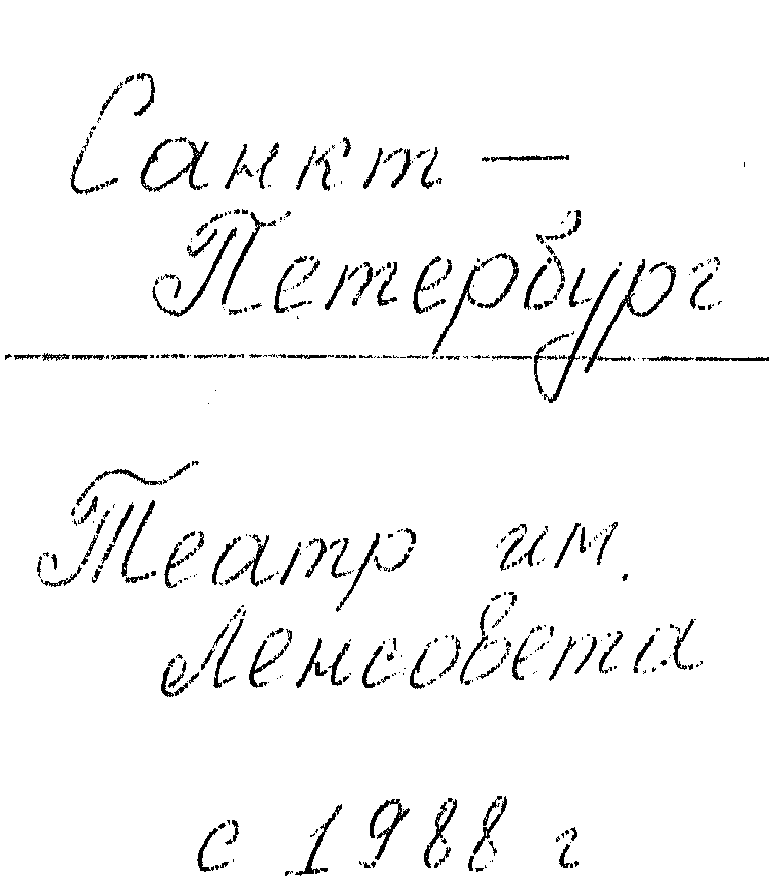 Санкт —
Петербург
Театр им.
Ленсовета
с 1988 г